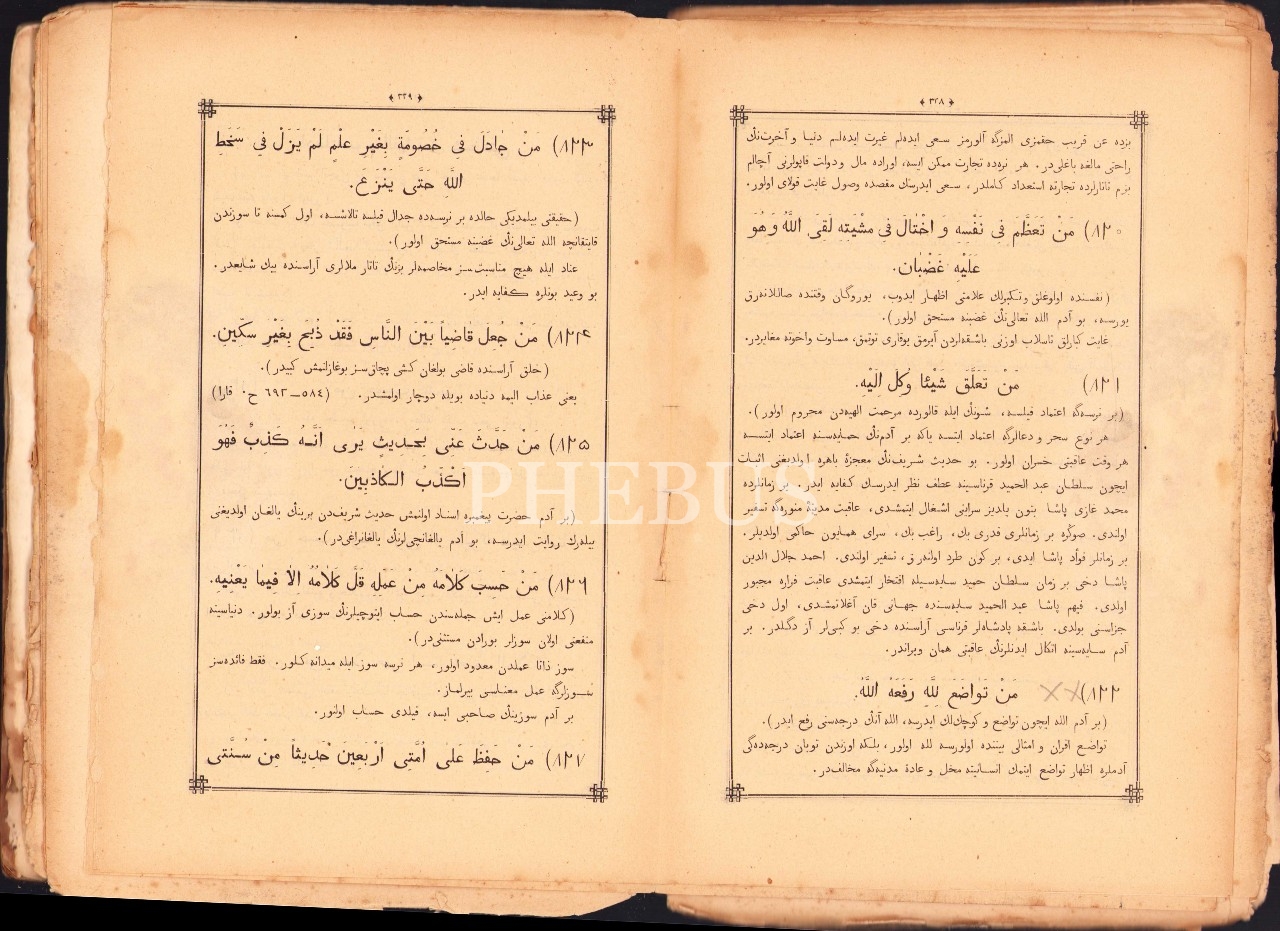 ﴿ ٣٢٨ ﴾
بزده عن قريب حقمزى المزگه آلورمز سعى ايده‌لم غيرت ايده‌لم دنيا و آخرت‌نڭ
راحتى مالغه باغلى‌در. هر نرده تجارت ممكن ايسه، اوراده مال و دولت قاپولرنى آچالم
بزم تاتارلرده تجارته استعداد كاملدر، سعى ايدرسك مقصده وصول غايت قولاى اولور.
٨٢٠) مَنْ تَعَظَّمَ فِى نَفْسِهِ وَ اخْتَالَ فِى مِشْيَتِهِ لَقِىَ اللَّهَ وَ هُوَ
عَلَيْهِ غَضْبَان.
(نفسنده اولوغلق و تكبرلك علامتى اظهار ايدوب، يوروگان وقتنده صاللانه‌رق
يورسه، بو آدم الله تعالى‌نڭ غضبنه مستحق اولور).
غايت كبارلق تاسلاب اوزنى باشقه‌لردن آيرمق يوقارى توتمق، مساوت واخوته مغايردر.
٨٢١) مَنْ تَعَلَّقَ شَيْئًا وُكِلَ اِلَيْهِ.
(بر نرسه‌گه اعتماد قيلسه، شونڭ ايله قالورده مرحمت الهيه‌دن محروم اولور).
هر نوع سحر و دعالرگه اعتماد ايتسه ياكه بر آدم‌نڭ حمايه‌سنه اعتماد ايتسه
هر وقت عاقبتى خسران اولور. بو حديث شريف‌نڭ معجزهٔ باهره اولديغى اثبات
ايچون سلطان عبد الحميد قرناسينه عطف نظر ايدرسك كفايه ايدر. بر زمانلرده
محمد غازى پاشا بتون يلديز سراينى اشغال ايتمشدى، عاقبت مدينهٔ منوره‌گه تسفير
اولندى. صوڭره بر زمانلرى قدرى بك، راغب بك، سراى همايون حاكمى اولديلر.
بر زمانلر فؤاد پاشا ايدى، بر كون طرد اولندى، تسفير اولندى. احمد جلال الدين
پاشا دخى بر زمان سلطان حميد سايه‌سيله افتخار ايتمشدى عاقبت فراره مجبور
اولدى. فهيم پاشا عبد الحميد سايه‌سنده جهانى قان آغلاتمشدى، اول دخى
جزاسنى بولدى. باشقه پادشاه‌لر قرناسى آراسنده دخى بو كبى‌لر آز دگلدر. بر
آدم سايه‌سينه اتكال ايدنلرنڭ عاقبتى همان ويراندر.
٨٢٢) مَنْ تَوَاضَعَ لِلَّهِ رَفَعَهُ اللَّهُ.
(بر آدم الله ايچون تواضع و كوچك‌لك ايدرسه، الله آنڭ درجه‌سنى رفع ايدر).
تواضع اقران و امثالى بيتنده اولورسه لله اولور، بلكه اوزندن توبان درجه‌ده‌گى
آدملره اظهار تواضع ايتمك انسانيته مخل و عادهٔ مدنيه‌گه مخالف‌در.
﴿ ٣٢٩ ﴾
٨٢٣) مَنْ جَادَلَ فِى خُصُومَةٍ بِغَيْرِ عِلْمٍ لَمْ يَزَلْ فِى سَخَطِ
اللَّهِ حَتَّى يَنْزَعَ.
(حقيقتنى بيلمديكى حالده بر نرسه‌ده جدال قيلسه تالاشسه، اول كمسنه تا سوزندن
قايتقانچه الله تعالى‌نڭ غضبنه مستحق اولور).
عناد ايله هيچ مناسبت‌سز مخاصمه‌لر بزنڭ تاتار ملالرى آراسنده بيك شايعدر.
بو وعيد بونلره كفايه ايدر.
٨٢٤) مَنْ جُعِلَ قَاضِياً بَيْنَ النَّاسِ فَقَدْ ذُبِحَ بِغَيْرِ سِكِّينٍ.
(خلق آراسنده قاضى بولغان كشى پچاق‌سز بوغازلانمش كبيدر).
يعنى عذاب اليمه دنياده بويله دوچار اولمشدر. (٥٨٤ــ٦٩٢ ح٠ قارا)
٨٢٥) مَنْ حَدَّثَ عَنِّى بِحَدِيثٍ يَرْى اَنَّهُ كَذِبٌ فَهُوَ
اَكْذَبُ الْكَاذِبِينَ.
(بر آدم حضرت پيغمبره اسناد اولنمش حديث شريف‌دن برينڭ يالغان اولديغنى
بيله‌رك روايت ايدرسه، بو آدم يالغانچى‌لرنڭ يالغانراغى‌در).
٨٢٦) مَنْ حَسَبَ كَلَامَهُ مِنْ عَمَلِهِ قَلَّ كَلَامُهُ اِلَّا فِيمَا يَعْنِيهِ.
(كلامنى عمل ايش جمله‌سندن حساب ايتوچيلرنڭ سوزى آز بولور. دنياسينه
منفعتى اولان سوزلر بورادن مستثنى‌در).
سوز ذاتا عملدن معدود اولور، هر نرسه سوز ايله ميدانه كلور. فقط فائده‌سز
سوزلرگه عمل معناسى بيرلماز.
بر آدم سوزينڭ صاحبى ايسه، فيلدى حساب اولنور.
٨٢٧) مَنْ حَفِظَ عَلَى اُمَّتِى اَرْبَعِينَ حَدِيثاً مِنْ سُنَّتِى
PHEBUS